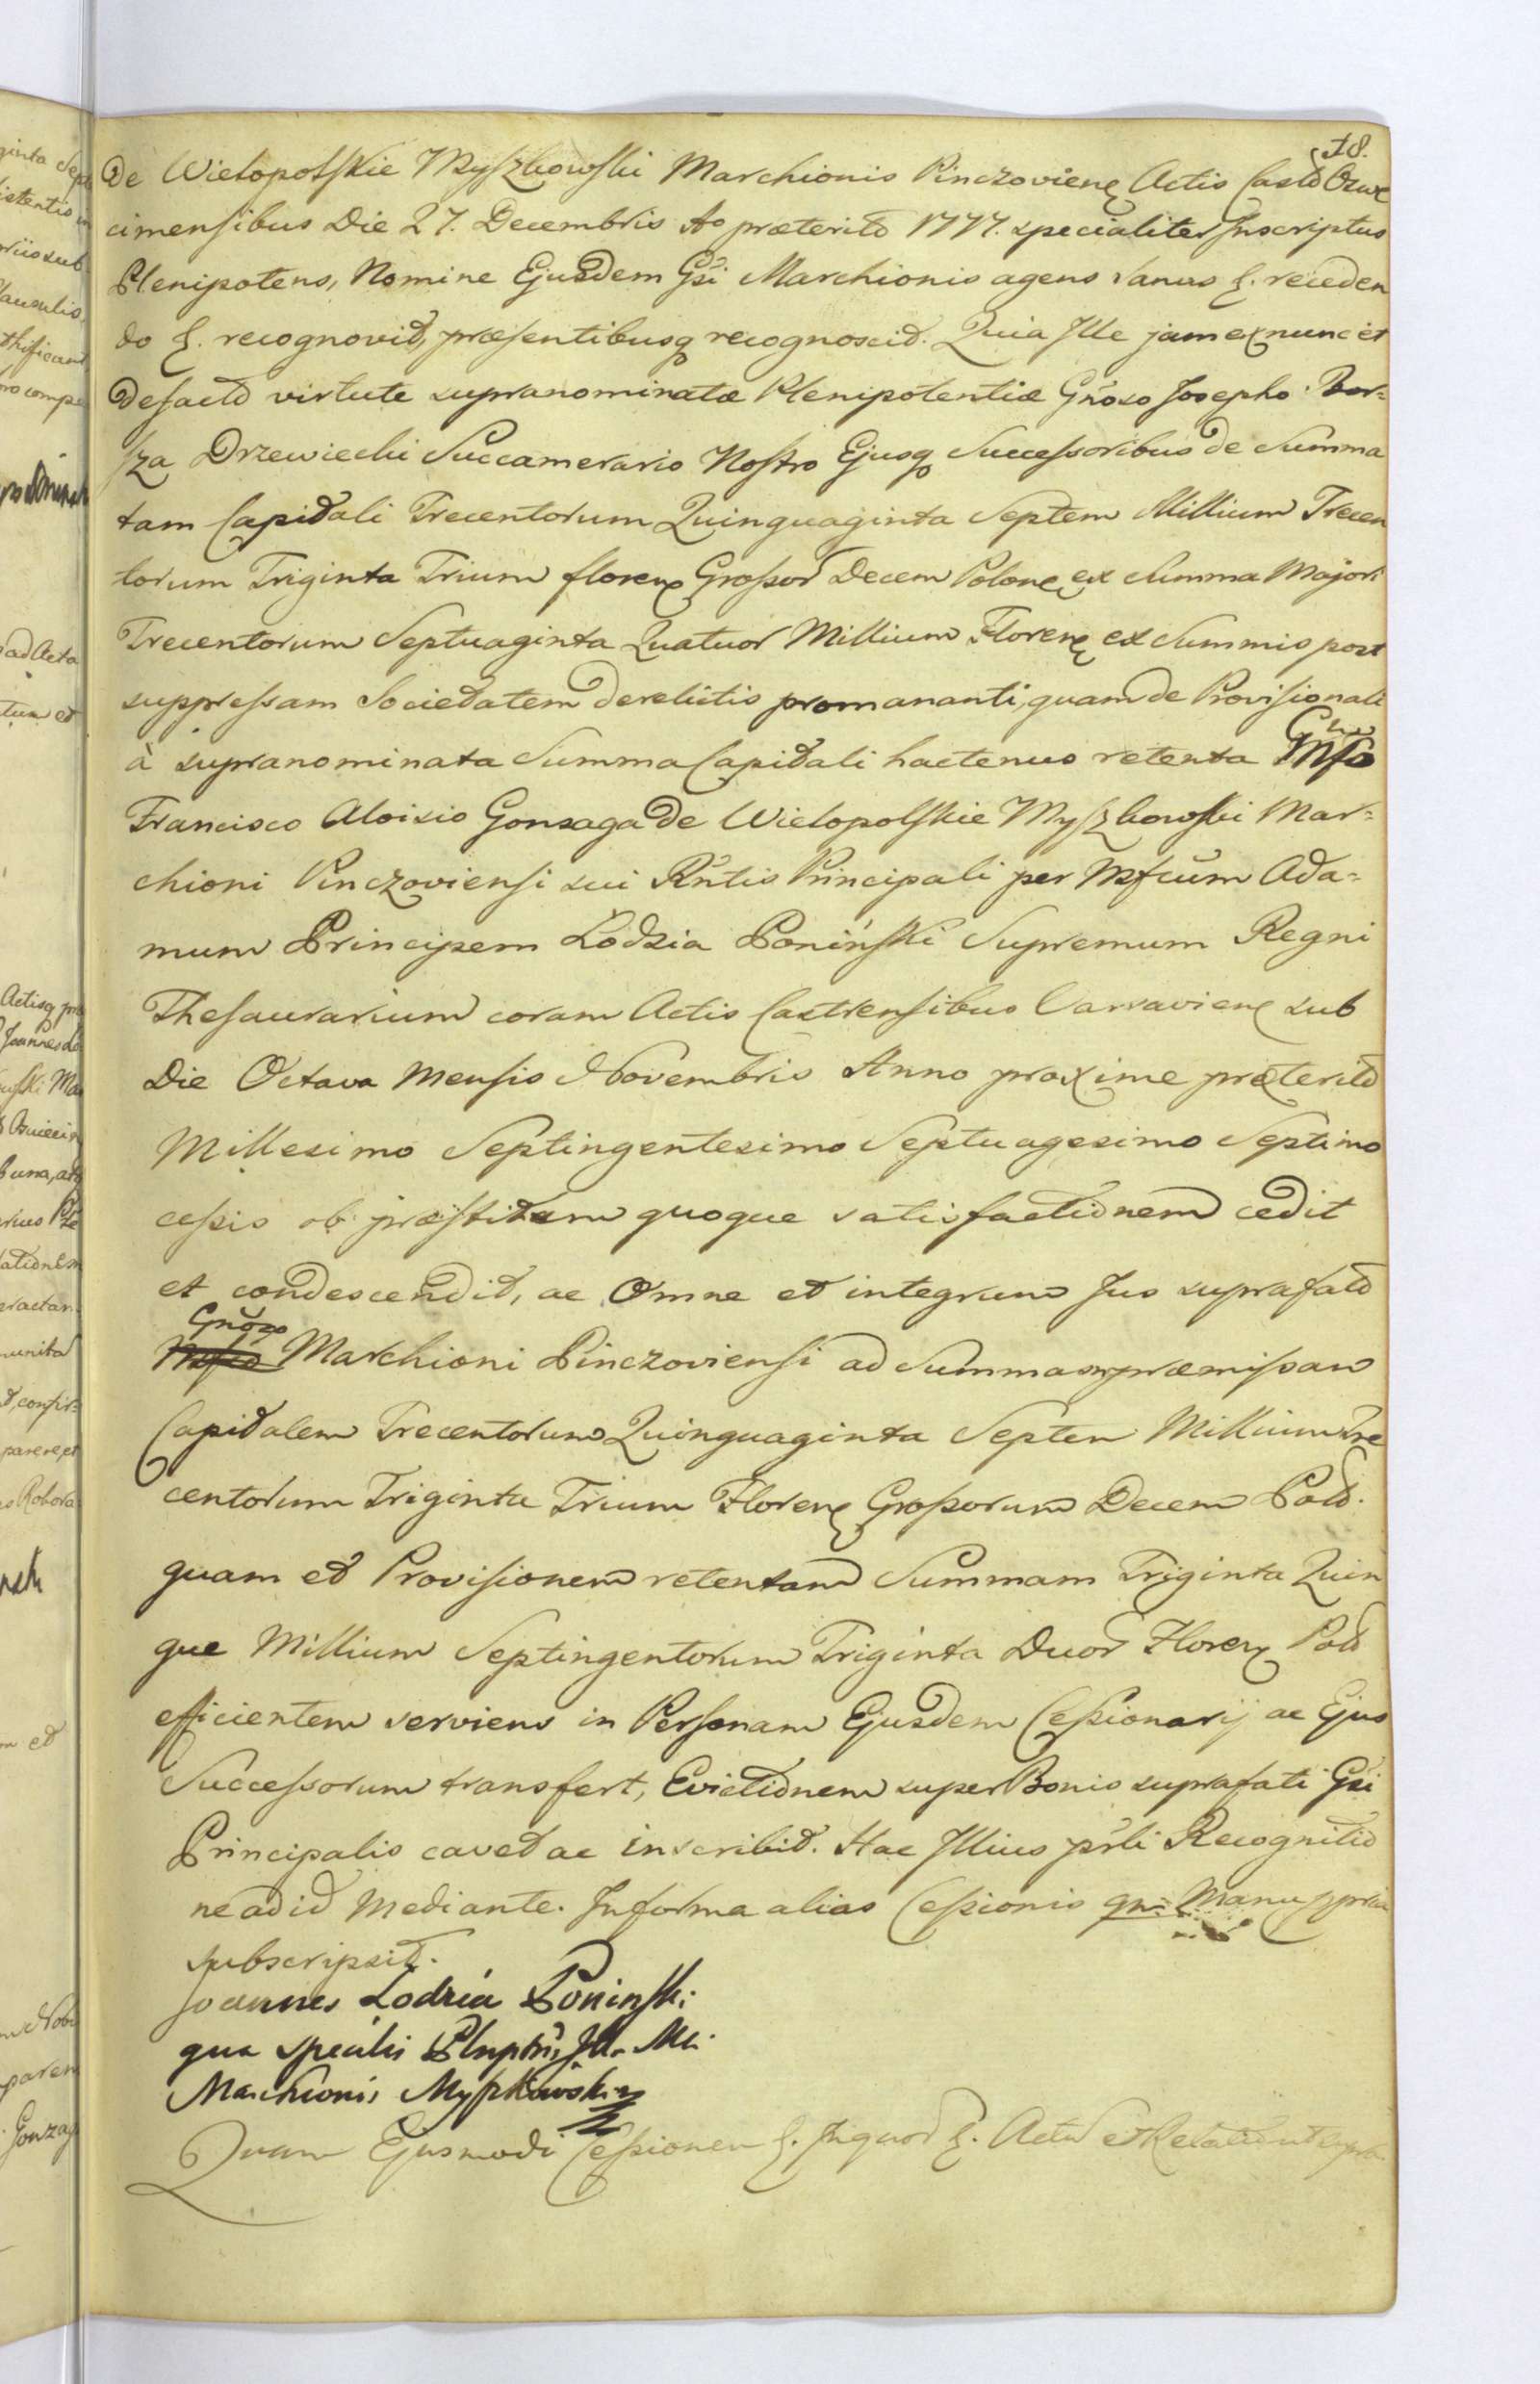 48.
De Wielopolskie Myszkowski Marchionis Pinczovieñ Actis Castr Oswe
cimensibus Die 27. Decembris Ao præterito 1777. specialiter Inscriptus
Plenipotens, Nomine Ejusdem Gsi Marchionis agens sanus &. receden
do &. recognovit, præsentibusq recognoscit. Quia Ille jam ex nunc et
Defacto virtute supranominatæ Plenipotentiæ Gnoso Josepho Nor=
sza Drzewiecki Succamerario Nostro Ejusq Successoribus de Summa
tam Capitali Trecentorum Quinquaginta Septem Millium Trecen
torum Triginta Trium floren Grossor Decem Polon ex Summa Majori
Trecentorum Septuaginta Quatuor Millium Floren ex Summis post
suppressam Societatem derelictis promananti, quam de Provisionali
à supranominata Summa Capitali hactenus retenta Gnso
Francisco Aloisio Gonzaga de Wielopolskie Myszkowski Mar=
chioni Pinczoviensi sui Rñtis Principali per Mfcum Ada=
mum Principem Łodzia Poniński Supremum Regni
Thesaurarium coram Actis Castrensibus Varsavien sub
Die Octava Mensis Novembris Anno proxime præterito
Millesimo Septingentesimo Septuagesimo Septimo
cessis ob præstitam quoque satisfactionem cedit
et condescendit, ac Omne et integrum Jus suprafato
Gnoso
Mfco Marchioni Pinczoviensi ad Summam præmissam
Capitalem Trecentorum Quinquaginta Septem Millium Tre
centorum Triginta Trium Floren Grossorum Decem Pol.
quam et Provisionem retentam Summam Triginta Quin
que Millium Septingentorum Triginta Duor Floren Pol
efficientem serviens in Personam Ejusdem Cessionarij ac Ejus
Successorum transfert, Evictionem super Bonis suprafati Gsi
Principalis cavet ac inscribit. Hac Illius pñti Recognitio
ne ad id Mediante. In forma alias Cessionis qm Manu ppria
subscripsit.
Joannes Łodzia Poninski
qua specialis Plnptns, Ill. Mi.
Marchionis Myszkowski
Quam Ejusmodi Cessionem &. Inquor &. Actu et Relatio ut supra